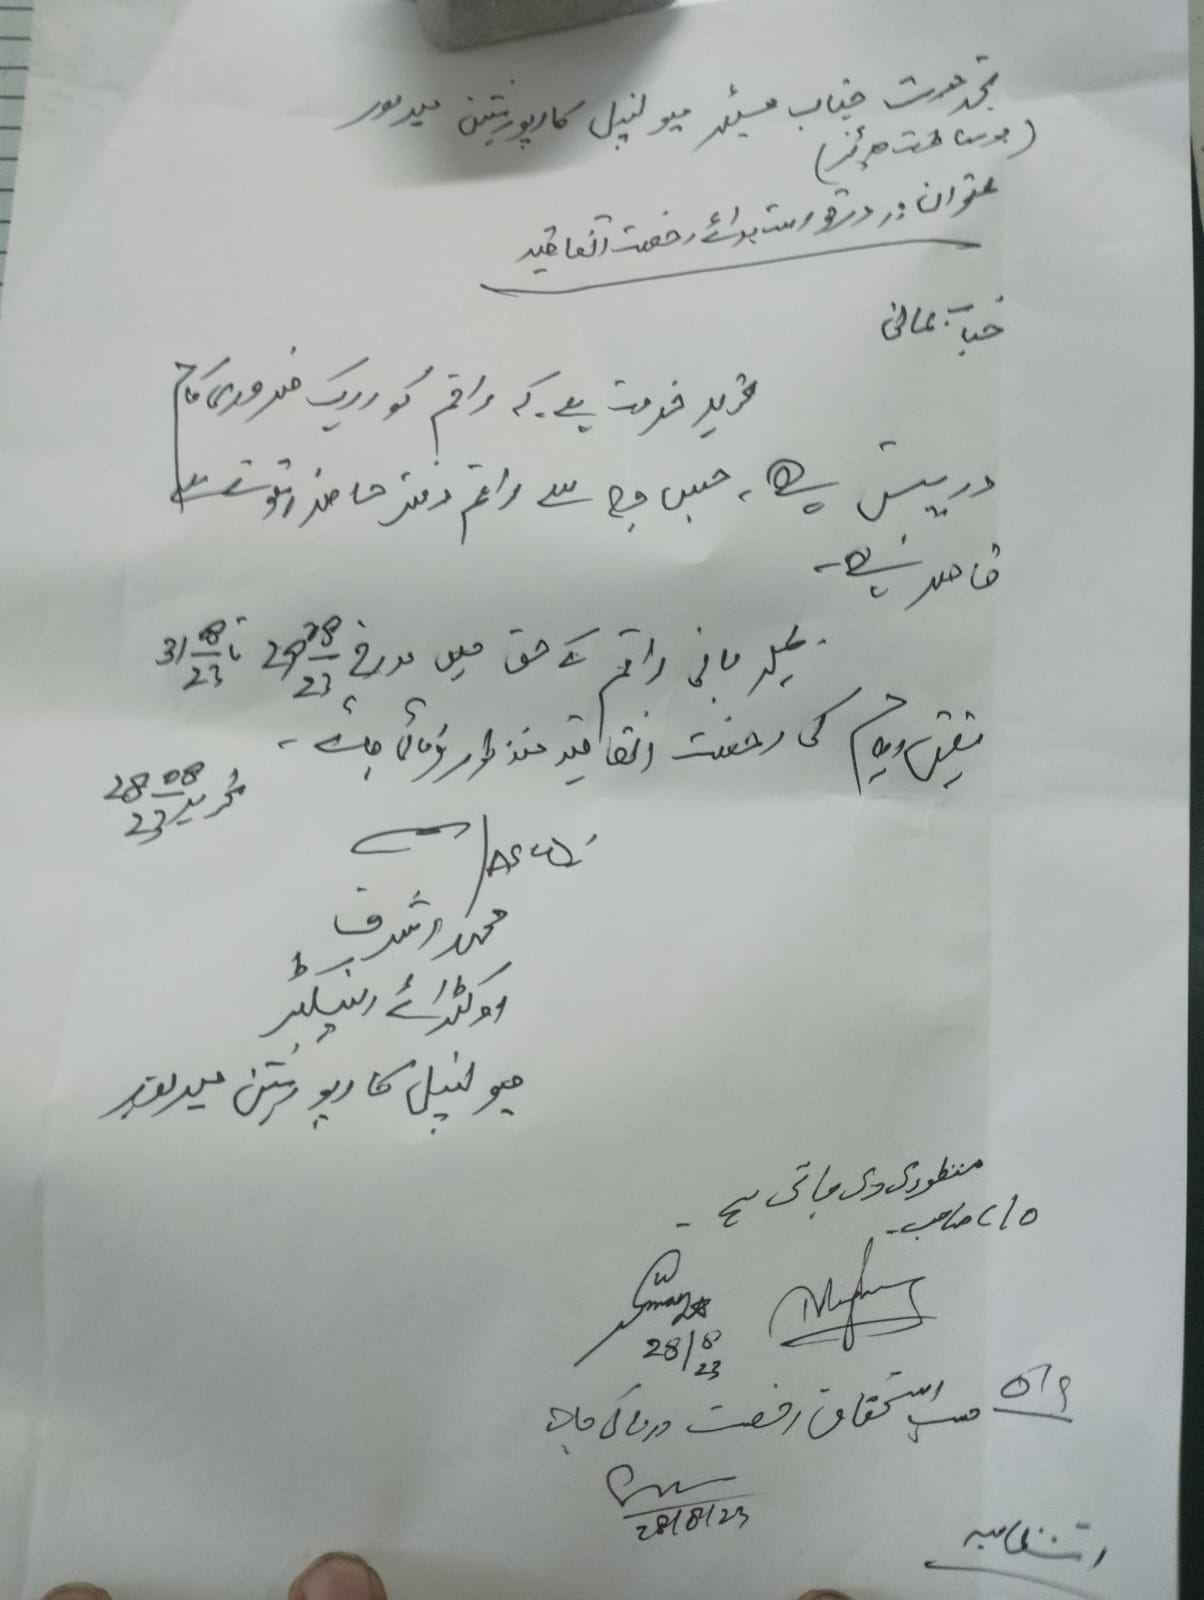 بخدمت جناب میئر میونسپل کارپوریشن میرپور
(بوساطت
عنوان :- درخواست برائے رخصت اتفاقیہ
جناب عالی
تحریر خدمت ہے۔ کہ راقم کو ایک ضروری کام
درپیش ہے ۔ جس وجہ سے راقم دفتر حاضر ہونے سے
قاصر ہے۔
مہربانی راقم کے حق میں مورخہ 29 08/23 تا 31 8/23
یوم کی رخصت اتفاقیہ منظور فرمائی جائے ۔
تحریر 28 08/23
محمد اشرف
اوکٹرائے انسپکٹر
میونسپل کارپوریشن میرپور
منظوری دی جاتی ہے ۔
C/O صاحب۔
28/8/23
حسب استحقاق رخصت درج کی جائے
28/8/23
انتظامیہ